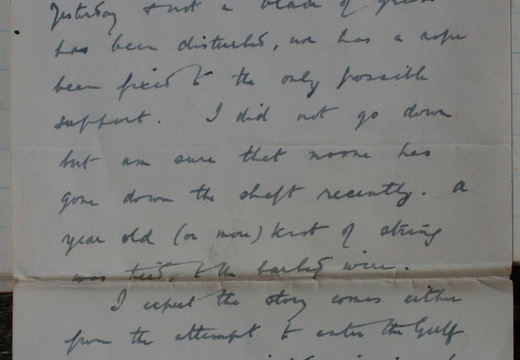 Yesterday & not a blade of grass
has been disturbed, nor has a rope
been fixed to the only possible
support. I did not go down
but am sure that noone has
gone down the shaft recently. A
year old (or more) knot of string
was tied to the barbed wire.
I expect the story comes either
from the attempt to enter the Gulf